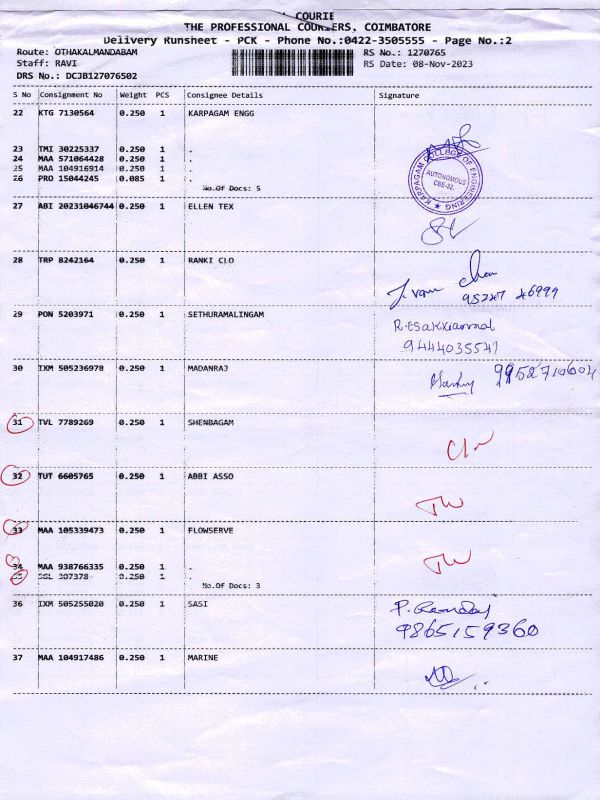 COURIE
THE PROFESSIONAL COURIERS, COIMBATORE
Delivery Runsheet - PCK - Phone No.:0422-3505555 - Page No.:2
Route: OTHAKALMANDABAM RS No.: 1270765
Staff: RAVI RS Date: 08-Nov-2023
DRS No.: DCJB127076502
S No Consignment No Weight PCS Consignee Details Signature
22 KTG 7130564 0.250 1 KARPAGAM ENGG
23 TMI 30225337 0.250 1 .
24 MAA 571064428 0.250 1 .
25 MAA 104916914 0.250 1 .
26 PRO 15044245 0.085 1 .
No.Of Docs: 5
KARPAGAM COLLEGE OF ENGINEERING
AUTONOMOUS
CBE-32.
27 ABI 20231046744 0.250 1 ELLEN TEX
28 TRP 8242164 0.250 1 RANKI CLO
29 PON 5203971 0.250 1 SETHURAMALINGAM
R.Esakkiammal
9444035547
30 IXM 505236978 0.250 1 MADANRAJ
9952710604
31 TVL 7789269 0.250 1 SHENBAGAM
32 TUT 6605765 0.250 1 ABBI ASSO
33 MAA 105339473 0.250 1 FLOWSERVE
34 MAA 938766335 0.250 1 .
35 SGL 307378 0.250 1 .
No.Of Docs: 3
36 IXM 505255020 0.250 1 SASI
9865159360
37 MAA 104917486 0.250 1 MARINE